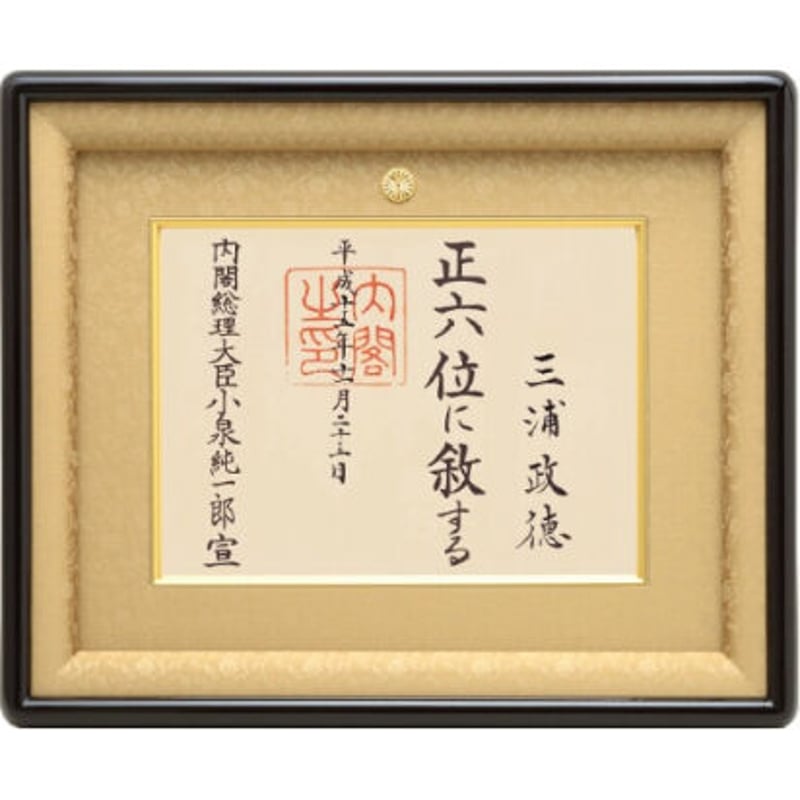 三浦政徳
正六位に敘する
平成十五年十一月二十三日
内閣之印
内閣総理大臣小泉純一郎宣